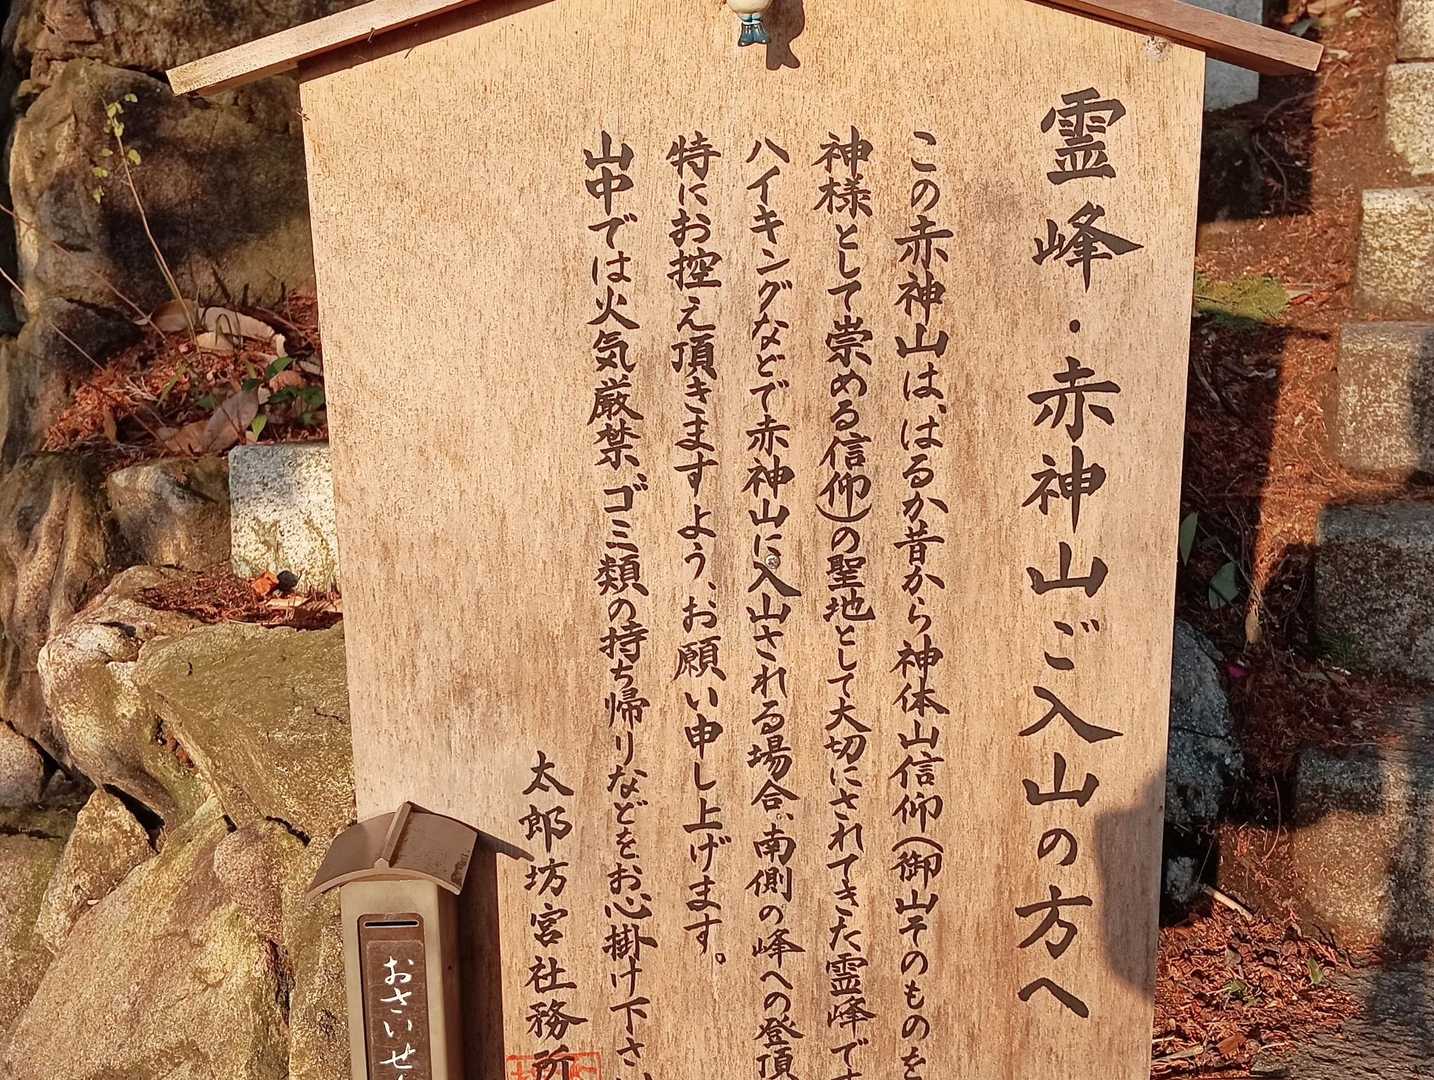 霊峰・赤神山ご入山の方へ
この赤神山は、はるか昔から神体山信仰(御山そのものを
神様として崇める信仰)の聖地として大切にされてきた霊峰です
ハイキングなどで赤神山に入山される場合、南側の峰への登頂
特にお控え頂きますよう、お願い申し上げます。
山中では火気厳禁、ゴミ類の持ち帰りなどをお心掛け下さい
太郎坊宮社務所
おさいせ